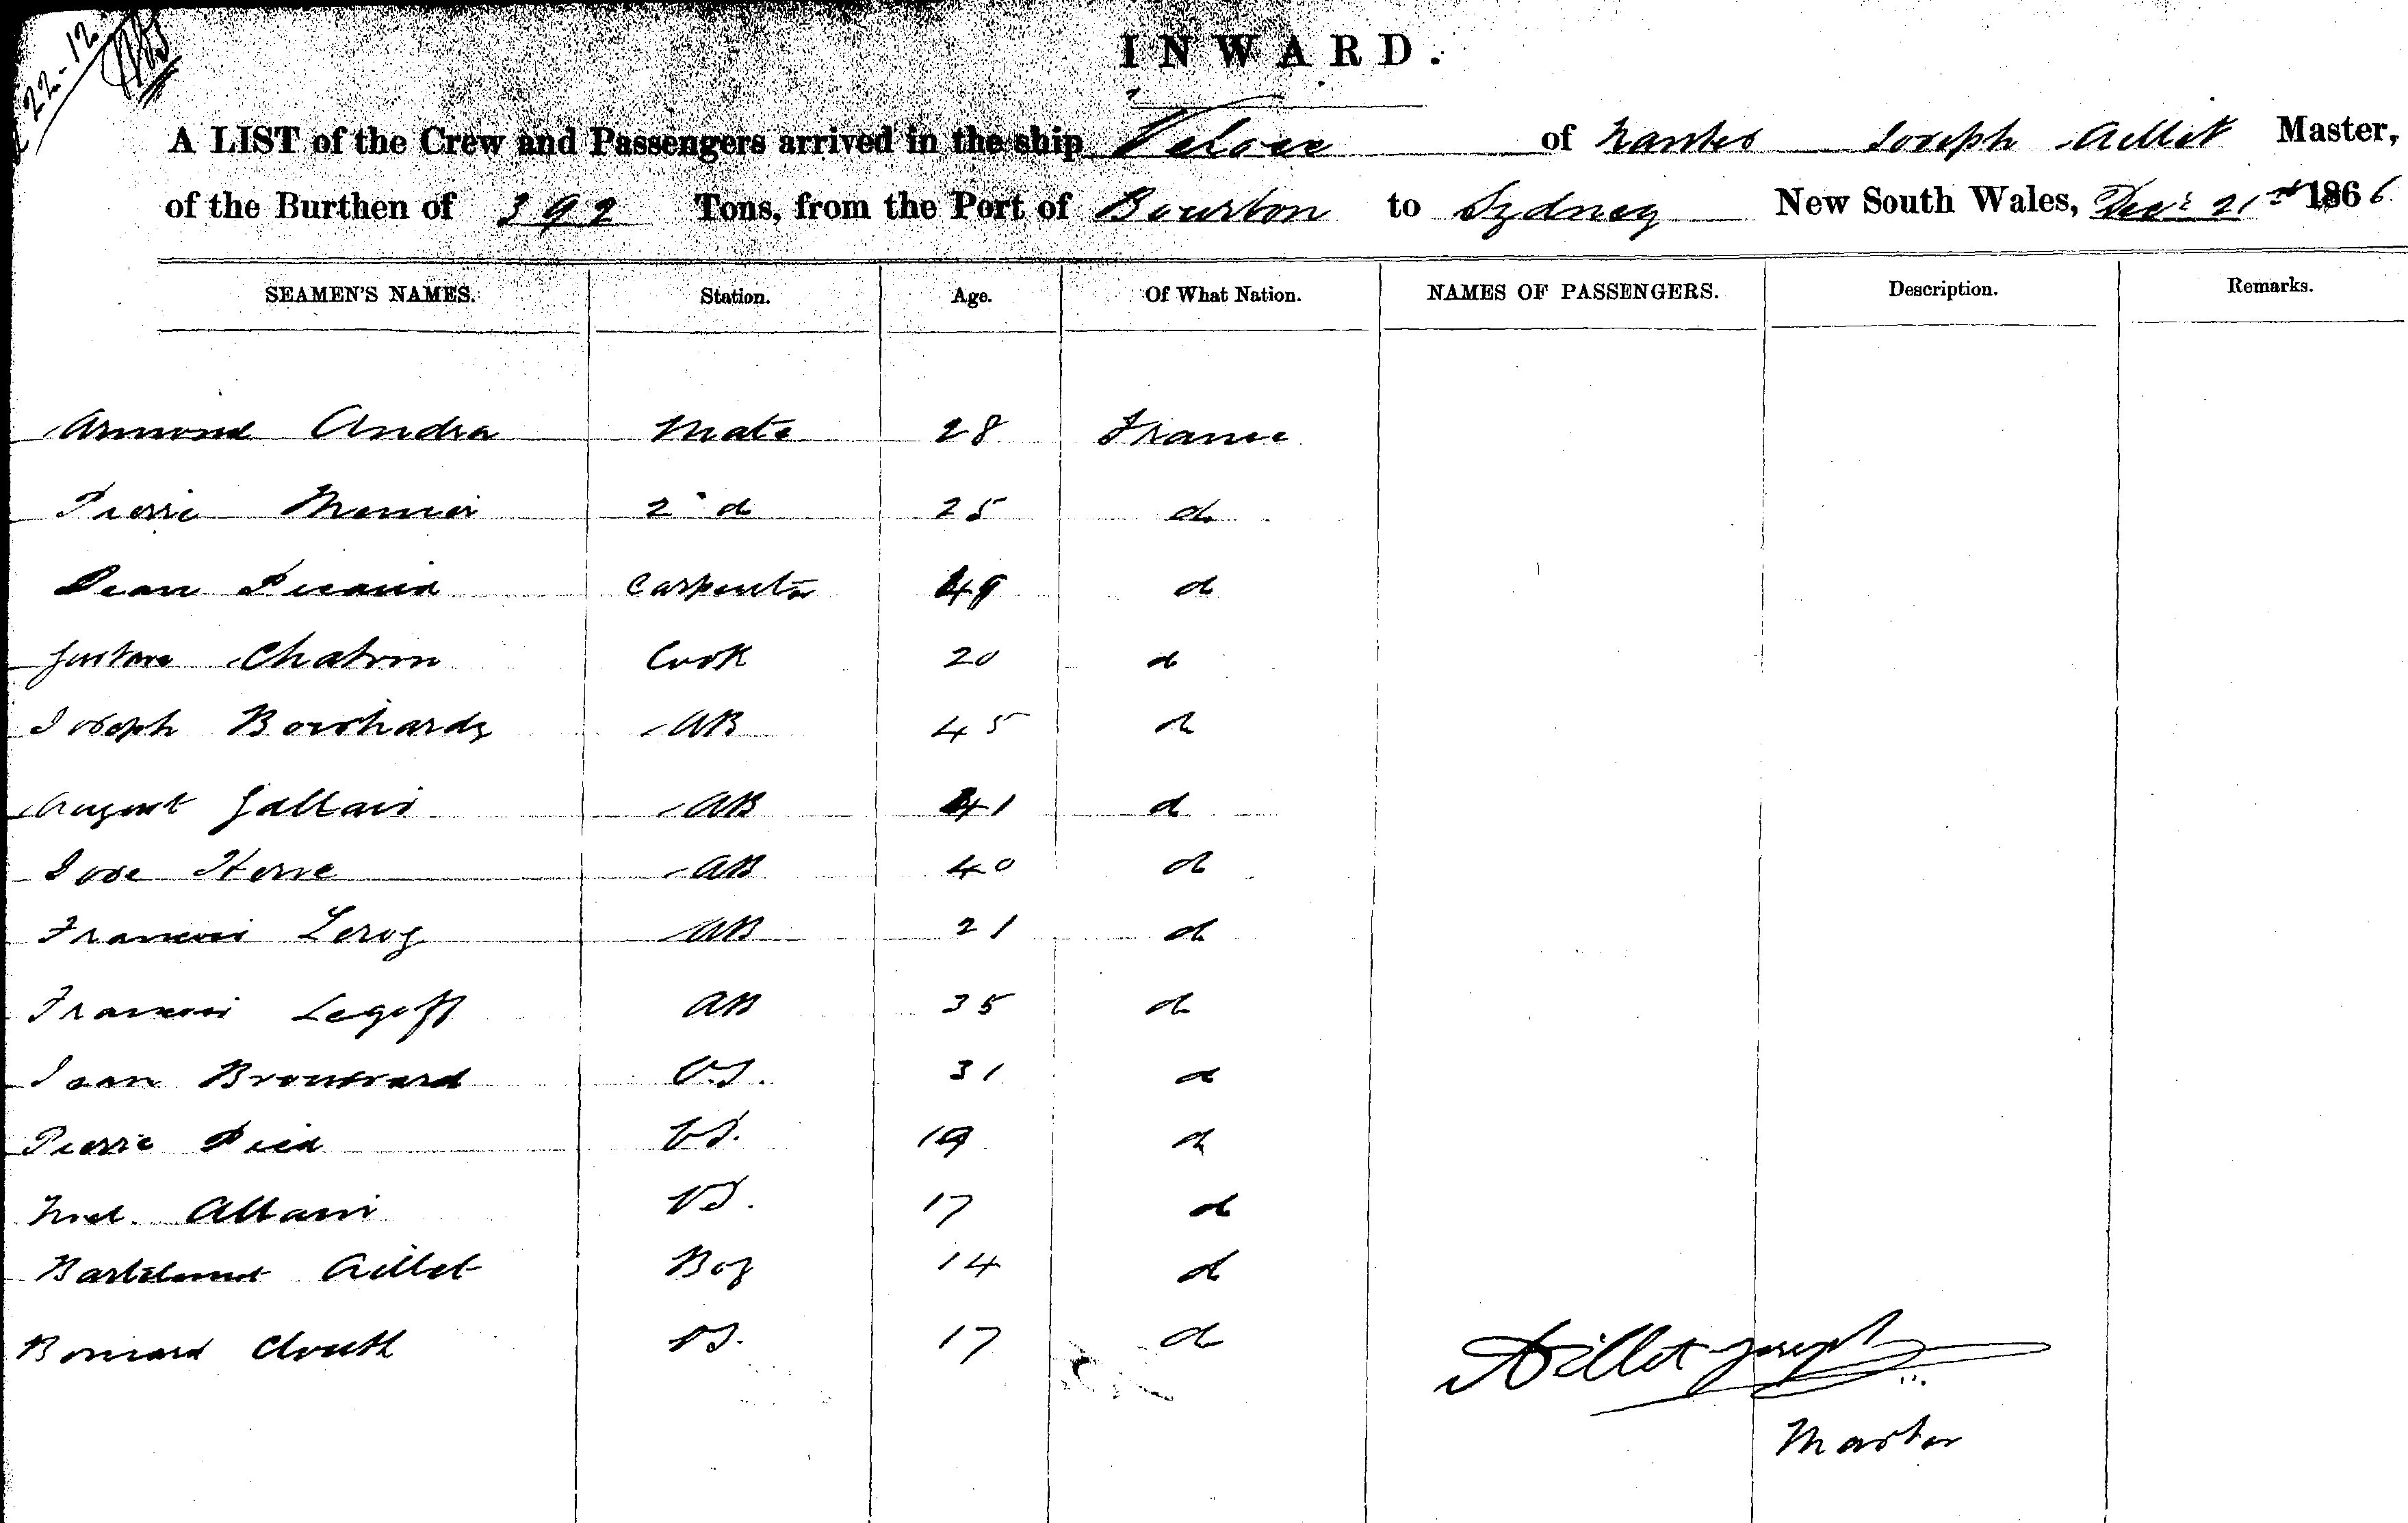 22-12
INWARD.
A LIST of the Crew and Passengers arrived in the ship Veloce of Nantes Joseph Aillet Master,
of the Burthen of 392 Tons, from the Port of Bourbon to Sydney New South Wales, Decr 21st 1866
SEAMEN'S NAMES. Station. Age. Of What Nation. NAMES OF PASSENGERS. Description. Remarks.
Armond Andra Mate 28 France
Pierre 2d 25 d
Jean Carpenter 49 d
Gustave Chatron Cook 20 d
Joseph AB 45 d
August Gallais AB 41 d
Jose Herve AB 40 d
Francois Leroy AB 21 d
Francois Legoff AB 35 d
Jean Broussard OS. 31 d
Pierre Pied OS. 19 d
Noel Allain OS. 17 d
Aillet Boy 14 d
OS. 17 d
Aillet Joseph
Master